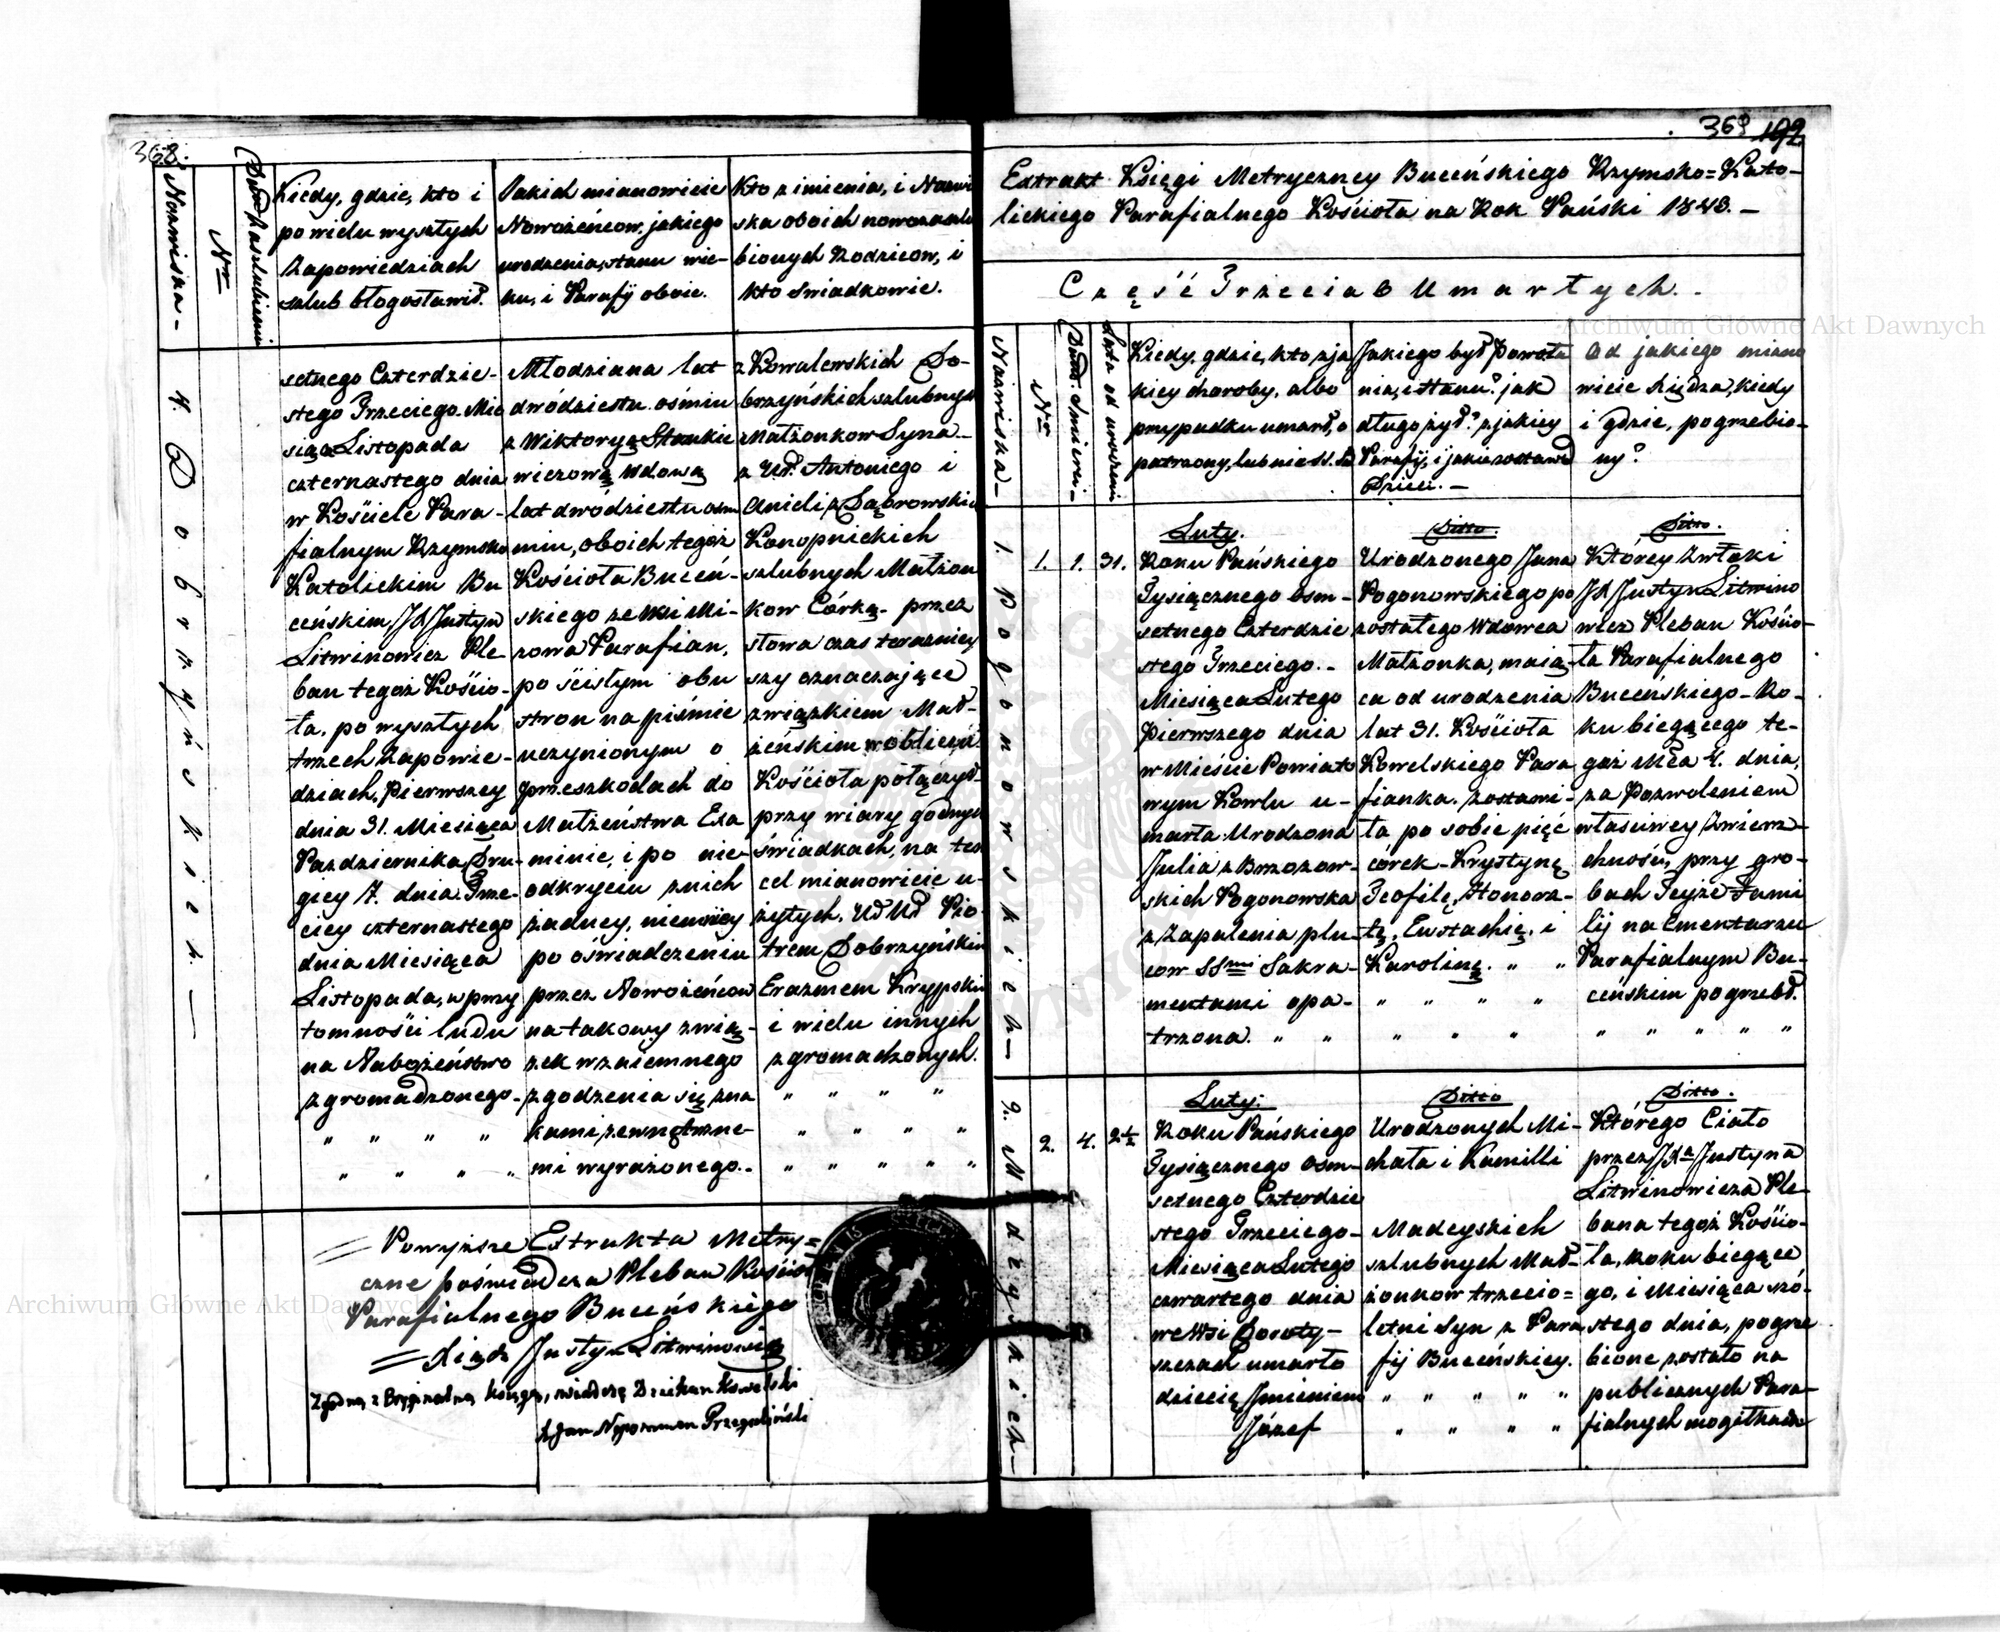 368.
Nazwiska -
Nro
Data Zaslubienia
Kiedy, gdzie, kto i
po wielu wyszłych
Zapowiedziach
szlub błogosławił.
Jakich mianowicie
Nowożeńcow, jakiego
urodzenia, stanu wie-
ku, i Parafij oboie.
Kto z imienia, i Nazwi
ska oboich nowozaślu
bionych Rodzicow, i
kto Swiadkowie.
4. Dobrzyńskich. —
setnego Czterdzie-
stego Trzeciego Mie
siąca Listopada
czternastego dnia
w Kościele Para-
fialnym Rzymsko
Katolickim Bu
ceńskim JX Justyn
Litwinowicz Ple
ban tegoż Kościo-
ła, po wyszłych
trzech Zapowie-
dziach, Pierwszey
dnia 31. Miesiąca
Pazdziernika, Dru-
giey 7. dnia Trze-
ciey czternastego
dnia Miesiąca
Listopada, w przy
tomności ludu
na Nabożeństwo
zgromadzonego -
" " " "
" " " "
Młodziana lat
dwódziestu ośmiu
z Wiktoryą Stankie
wiczową Wdową
lat dwódziestu ośm
miu, oboich tegoż
Kościoła Buceń-
skiego ze Wsi Mi-
zowa Parafian,
po ścisłym obu
stron na piśmie
uczynionym o
przeszkodach do
Małżeństwa Exa
minie, i po nie-
odkryciu z nich
żadney, niemniey
po oświadczeniu
przez Nowożeńcow
na takowy zwią-
zek wzaiemnego
zgodzenia się zna
kami zewnętrzne-
mi wyrażonego.-
z Kowalewskich Do-
brzyńskich szlubnych
Małżonkow Syna-
z Ud. Antoniego i
Anieli z Dąbrowskich
Konopnickich
szlubnych Małżon
kow Córką - przez
słowa czas terazniey
szy oznaczaiące
związkiem Mał-
żeńskim w obliczu
Kościoła połączył
przy wiary godnych
świadkach, na ten
cel mianowicie u-
żytych. Ud Ud Pio-
trem Dobrzyńskim
Erazmem Krypskim
i wielu innych
zgromadzonych.
" " " "
" " " "
" " " " "
Powyższe Extrakta Metry=
czne poświadcza Pleban Kościoł
Parafialnego Buceńskiego
Xiądz Justyn Litwinowicz
Zgodną z Oryginalną Księgą, swiadczę Dziekan Kowelski
X Jan Nepomucen Przegaliński
369 192
Extrakt Księgi Metryczney Buceńskiego Rzymsko=Kato-
lickiego Parafialnego Kościoła na Rok Pański 1843. -
Część Trzecia o Umarłych. -
Nazwiska -
Nro
Data Smierci -
Lata od urodzenia
Kiedy, gdzie, kto z ja
kiey choroby, albo
przypadku umarł, o
patrzony, lub nie SS. Sa
Jakiego był Powoła
nia, i stanu? jak
długo żył? z jakiey
Parafij, i jakie zostawił
Dzieci. -
Od jakiego miano
wicie Księdza, kiedy
i gdzie, pogrzebio-
ny?
1. Pogonowskich —
1. 1. 31.
Luty.
Roku Pańskiego
Tysiącznego osm-
setnego Czterdzie
stego Trzeciego. -
Miesiąca Lutego
Pierwszego dnia
w Mieście Powiato
wym Kowlu u-
marła Urodzona
Julia z Brzozow-
skich Pogonowska
z Zapalenia płu-
cow SSmi Sakra-
mentami opa-
trzona. " "
Ditto.
Urodzonego Jana
Pogonowskiego po
zostałego Wdowca
Małżonka, maią
ca od urodzenia
lat 31. Kościoła
Kowelskiego Para
fianka. zostawi-
ła po sobie pięć
córek - Krystynę
Teofilę, Honora-
tę, Eustachię, i
Karolinę. " "
" " " "
" " "
Ditto.
Którey Zwłoki
JX Justyn Litwino
wicz Pleban Kościo-
ła Parafialnego
Buceńskiego - Ro-
ku biegącego te-
goż Mca 4. dnia,
za Pozwoleniem
właściwey Zwierz-
chności, przy gro-
bach Teyże Fami
lij na Cmentarzu
Parafialnym Bu-
ceńskim pogrzebł.
" " " " "
2. Madeyskich —
2. 4. 2 1/2
Luty.
Roku Pańskiego
Tysiącznego osm-
setnego Czterdzie
stego Trzeciego -
Miesiąca Lutego
czwartego dnia
we Wsi Doroty-
szczach umarło
dziecię Jmieniem
Józef
Ditto
Urodzonych Mi-
chała i Kamilli
Madeyskich
szlubnych Mał-
żonkow trzecio=
letni Syn z Para
fij Buceńskiey.
" " " " "
" " " "
Ditto.
Którego Ciało
przez JXa Justyna
Litwinowicza Ple-
bana tegoż Kościo-
ła, Roku biegące
go, i Miesiąca szó-
stego dnia, pogrze
bione zostało na
publicznych Para-
fialnych mogiłkach
Archiwum Główne Akt Dawnych
Archiwum Główne Akt Dawnych